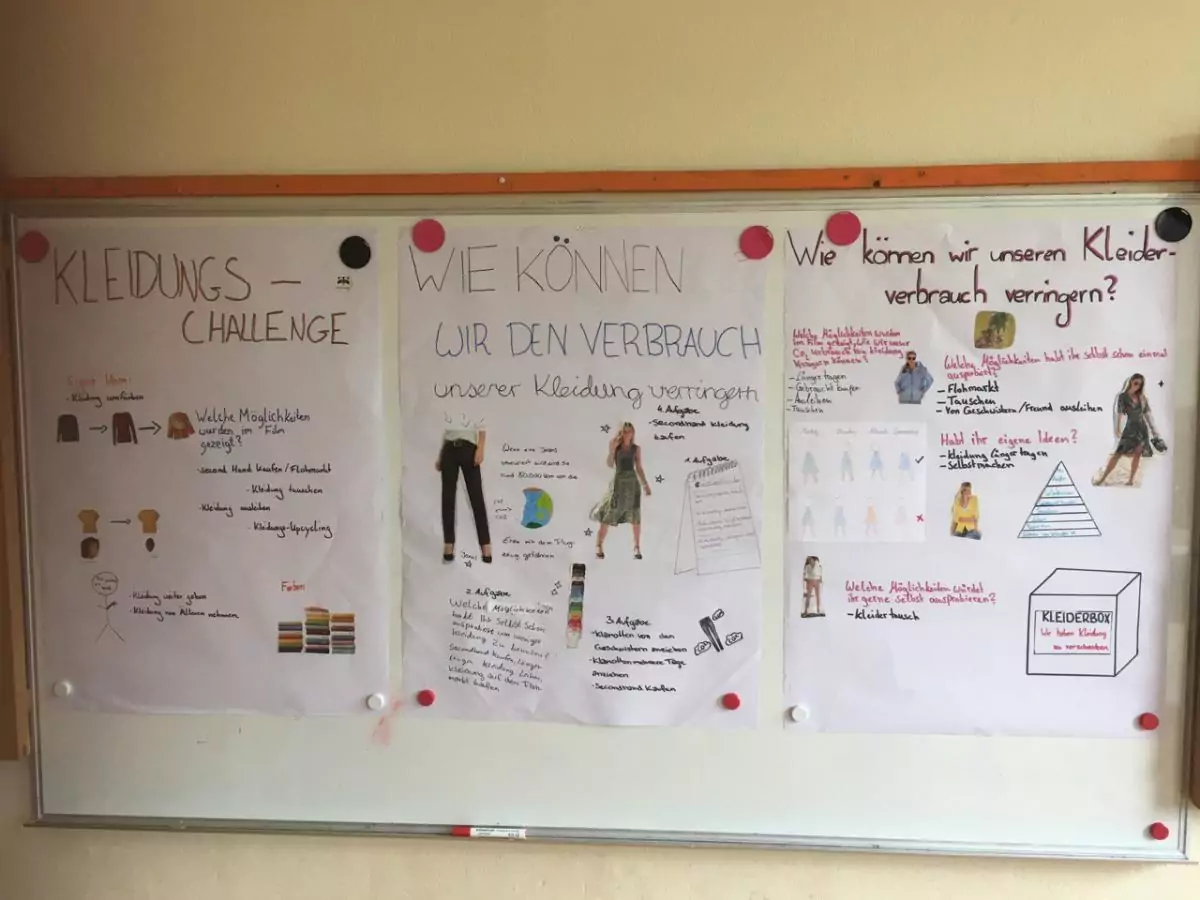 KLEIDUNGS –
CHALLENGE
Eigene Ideen:
- Kleidung umfärben
Welche Möglichkeiten
wurden im Film
gezeigt?
- second Hand Kaufen/Flohmarkt
- Kleidung tauschen
- Kleidung ausleihen
- Kleidungs-Upcycling
- Kleidung weiter geben
- Kleidung von Älteren nehmen
Farben
WIE KÖNNEN
WIR DEN VERBRAUCH
unserer Kleidung verringern
4. Aufgabe
- Secondhand Kleidung
kaufen
Wenn eine Jeans
rund 50.000 km um die
Erde mit dem Flug-
zeug gefahren
Jeans
1. Aufgabe
2. Aufgabe
Welche Möglichkeiten
habt ihr selbst schon
ausprobiert um weniger
Kleidung zu
Secondhand kaufen, länger
tragen, Kleidung leihen,
Kleidung auf dem Floh-
markt kaufen
3. Aufgabe
- Klamotten von den
Geschwistern anziehen
- Klamotten mehrere Tage
anziehen
- Secondhand Kaufen
Wie können wir unseren Kleider-
verbrauch verringern?
Welche Möglichkeiten wurden
im Film gezeigt, wie wir unser
CO₂ verbrauch bei Kleidung
verringern können?
- Länger tagen
- Gebraucht kaufen
- Ausleihen
- Tauschen
Welche Möglichkeiten habt ihr selbst schon einmal
ausprobiert?
- Flohmarkt
- Tauschen
- Von Geschwistern/Freund ausleihen
Habt ihr eigene Ideen?
- Kleidung länger tagen
- Selbstmachen
Welche Möglichkeiten würdet
ihr gerne selbst ausprobieren?
- Kleidertausch
KLEIDERBOX
Wir haben Kleidung
zu verschenken